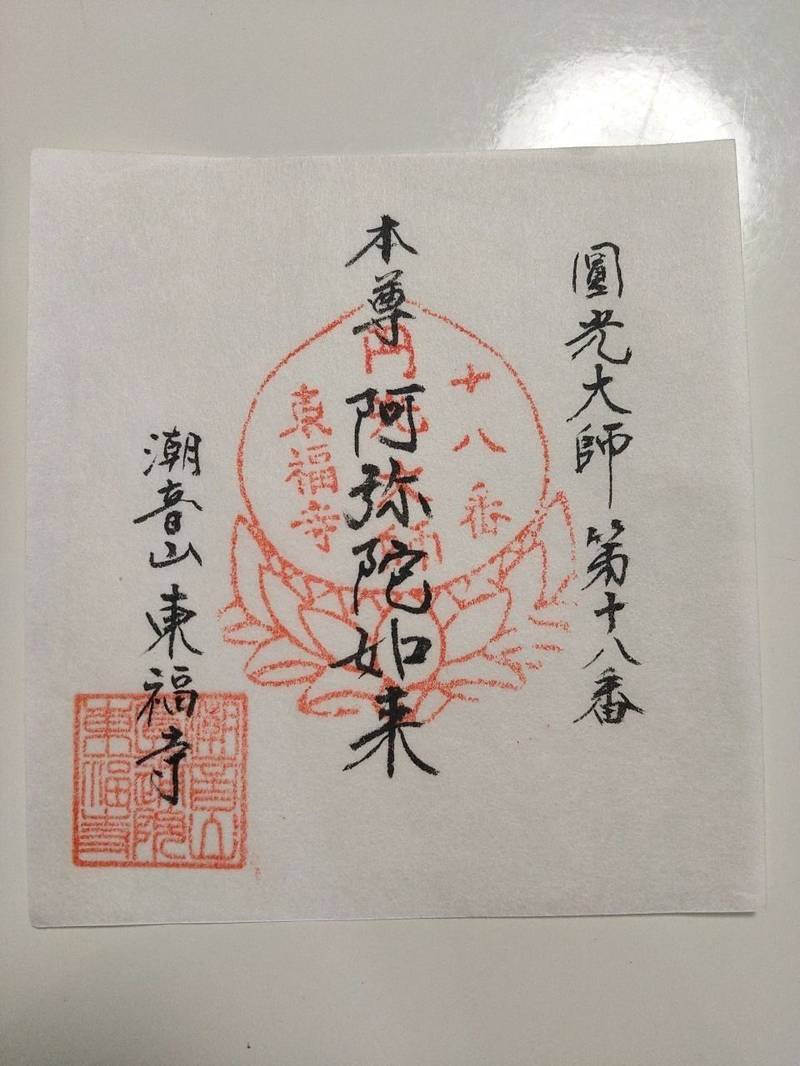 圓光大師第十八番
本尊阿弥陀如来
潮音山東福寺
十八番
円光大師
東福寺
潮音山
東福寺